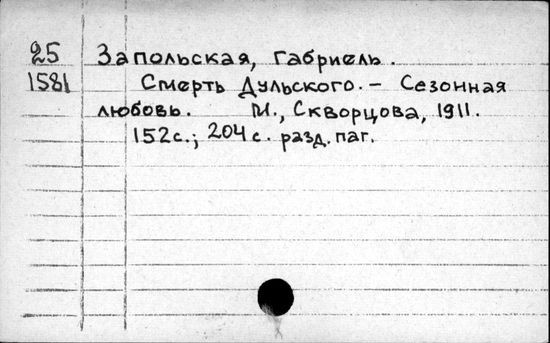 25 Запольская, Габриель.
1581 Смерть Дульского. – Сезонная
любовь. М., Скворцова, 1911.
152с.; 204с. разд. паг.